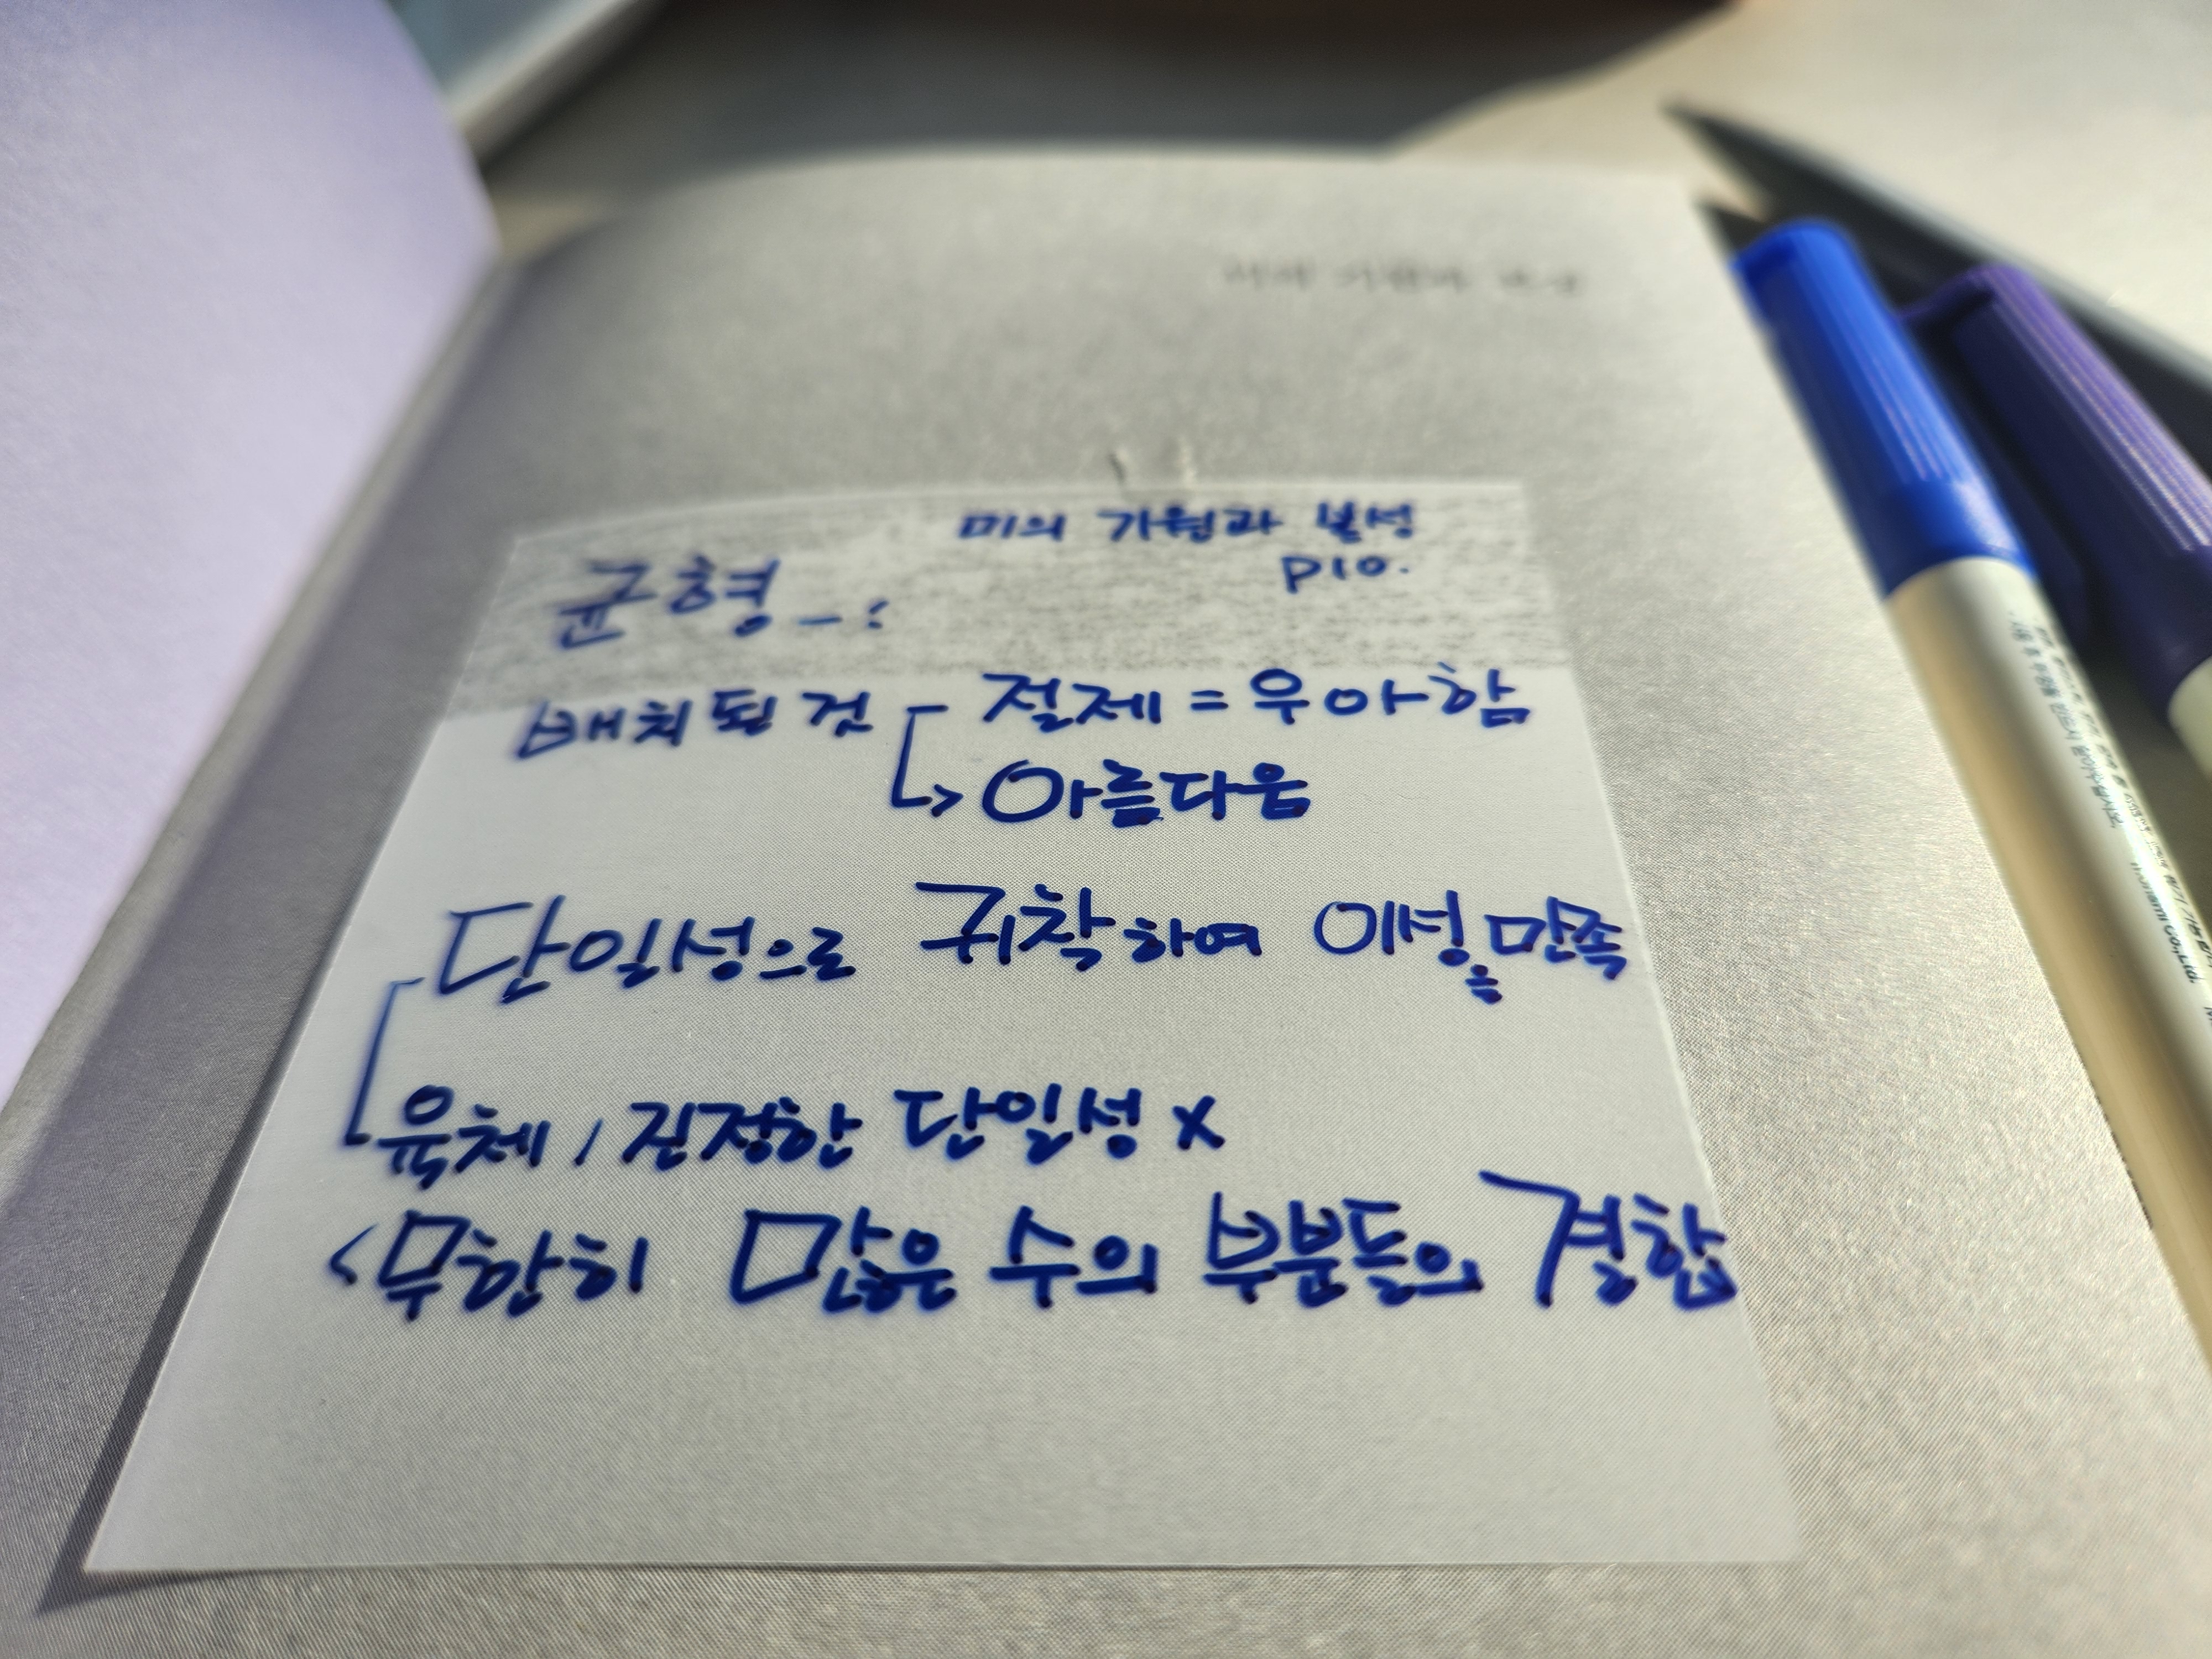 미의 기원과 본성
P10.
균형_:
배치된 것 - 절제 = 우아함
→ 아름다움
단일성으로 귀착하여 이성을 만족
육체, 진정한 단일성 x
<무한히 많은 수의 부분들의 결합
monami co., Ltd.